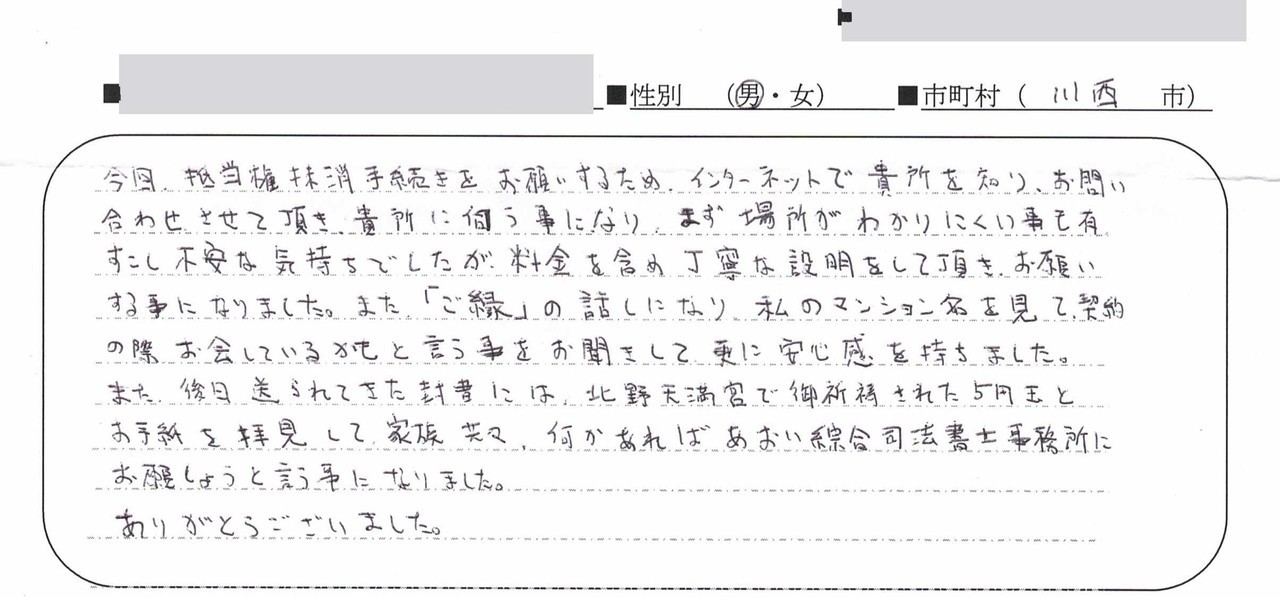 ■ ■性別 （男・女） ■市町村（ 川西 市）
今回、抵当権抹消手続きをお願いするため、インターネットで貴所を知り、お問い
合わせさせて頂き、貴所に伺う事になり、まず場所がわかりにくい事も有
すこし不安な気持ちでしたが、料金を含め丁寧な説明をして頂き、お願い
する事になりました。また、「ご縁」の話しになり、私のマンション名を見て、契約
の際、お会しているかもと言う事をお聞きして、更に安心感を持ちました。
また、後日送られてきた封書には、北野天満宮で御祈祷された5円玉と
お手紙を拝見して、家族共々、何かあればあおい綜合司法書士事務所に
お願しようと言う事になりました。
ありがとうございました。